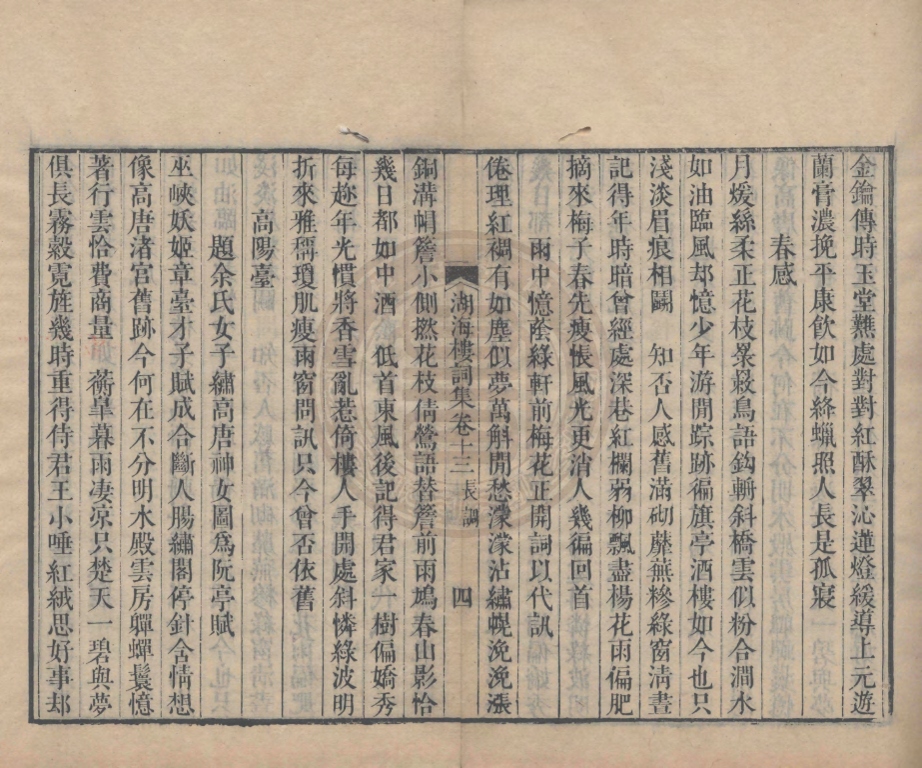 金鑰傳時玉堂鷰處對對紅酥翠沁蓮燈緩導上元遊
蘭膏濃挽平康飲如今絳蠟照人長是孤寢
春感
月煖絲柔正花枝槃縠鳥語鈎輈斜橋雲似粉合澗水
如油臨風却憶少年游閒踪跡徧旗亭酒樓如今也只
淺淡眉痕相鬭　知否人感舊滿砌蘼蕪糝綠窗淸晝
記得年時暗曾經處深巷紅欄弱柳飄盡楊花雨偏肥
摘來梅子春先瘦悵風光更消人幾徧回首
雨中憶蔭綠軒前梅花正開詞以代訊
倦理紅襉有如塵似夢萬斛閒愁濛濛沾繡幌浼浼漲
湖海樓詞集卷十三　長調　四
銅溝㡌簷小側撚花枝倩鶯語替簷前雨鳩春山影恰
幾日都如中酒　低首東風後記得君家一樹偏嬌秀
每趂年光慣將香雪亂惹倚樓人手開處斜憐綠波明
折來雅稱瓊肌瘦雨窗問訊只今曾否依舊
高陽臺
題余氏女子繡高唐神女圖爲阮亭賦
巫峽妖姬章臺才子賦成合斷人腸繡閣停針含情想
像高唐渚宮舊跡今何在不分明水殿雲房嚲蟬鬟憶
著行雲恰費商量　蘅皐暮雨凄凉只楚天一碧與夢
俱長霧縠霓旌幾時重得侍君王小唾紅絨思好事却